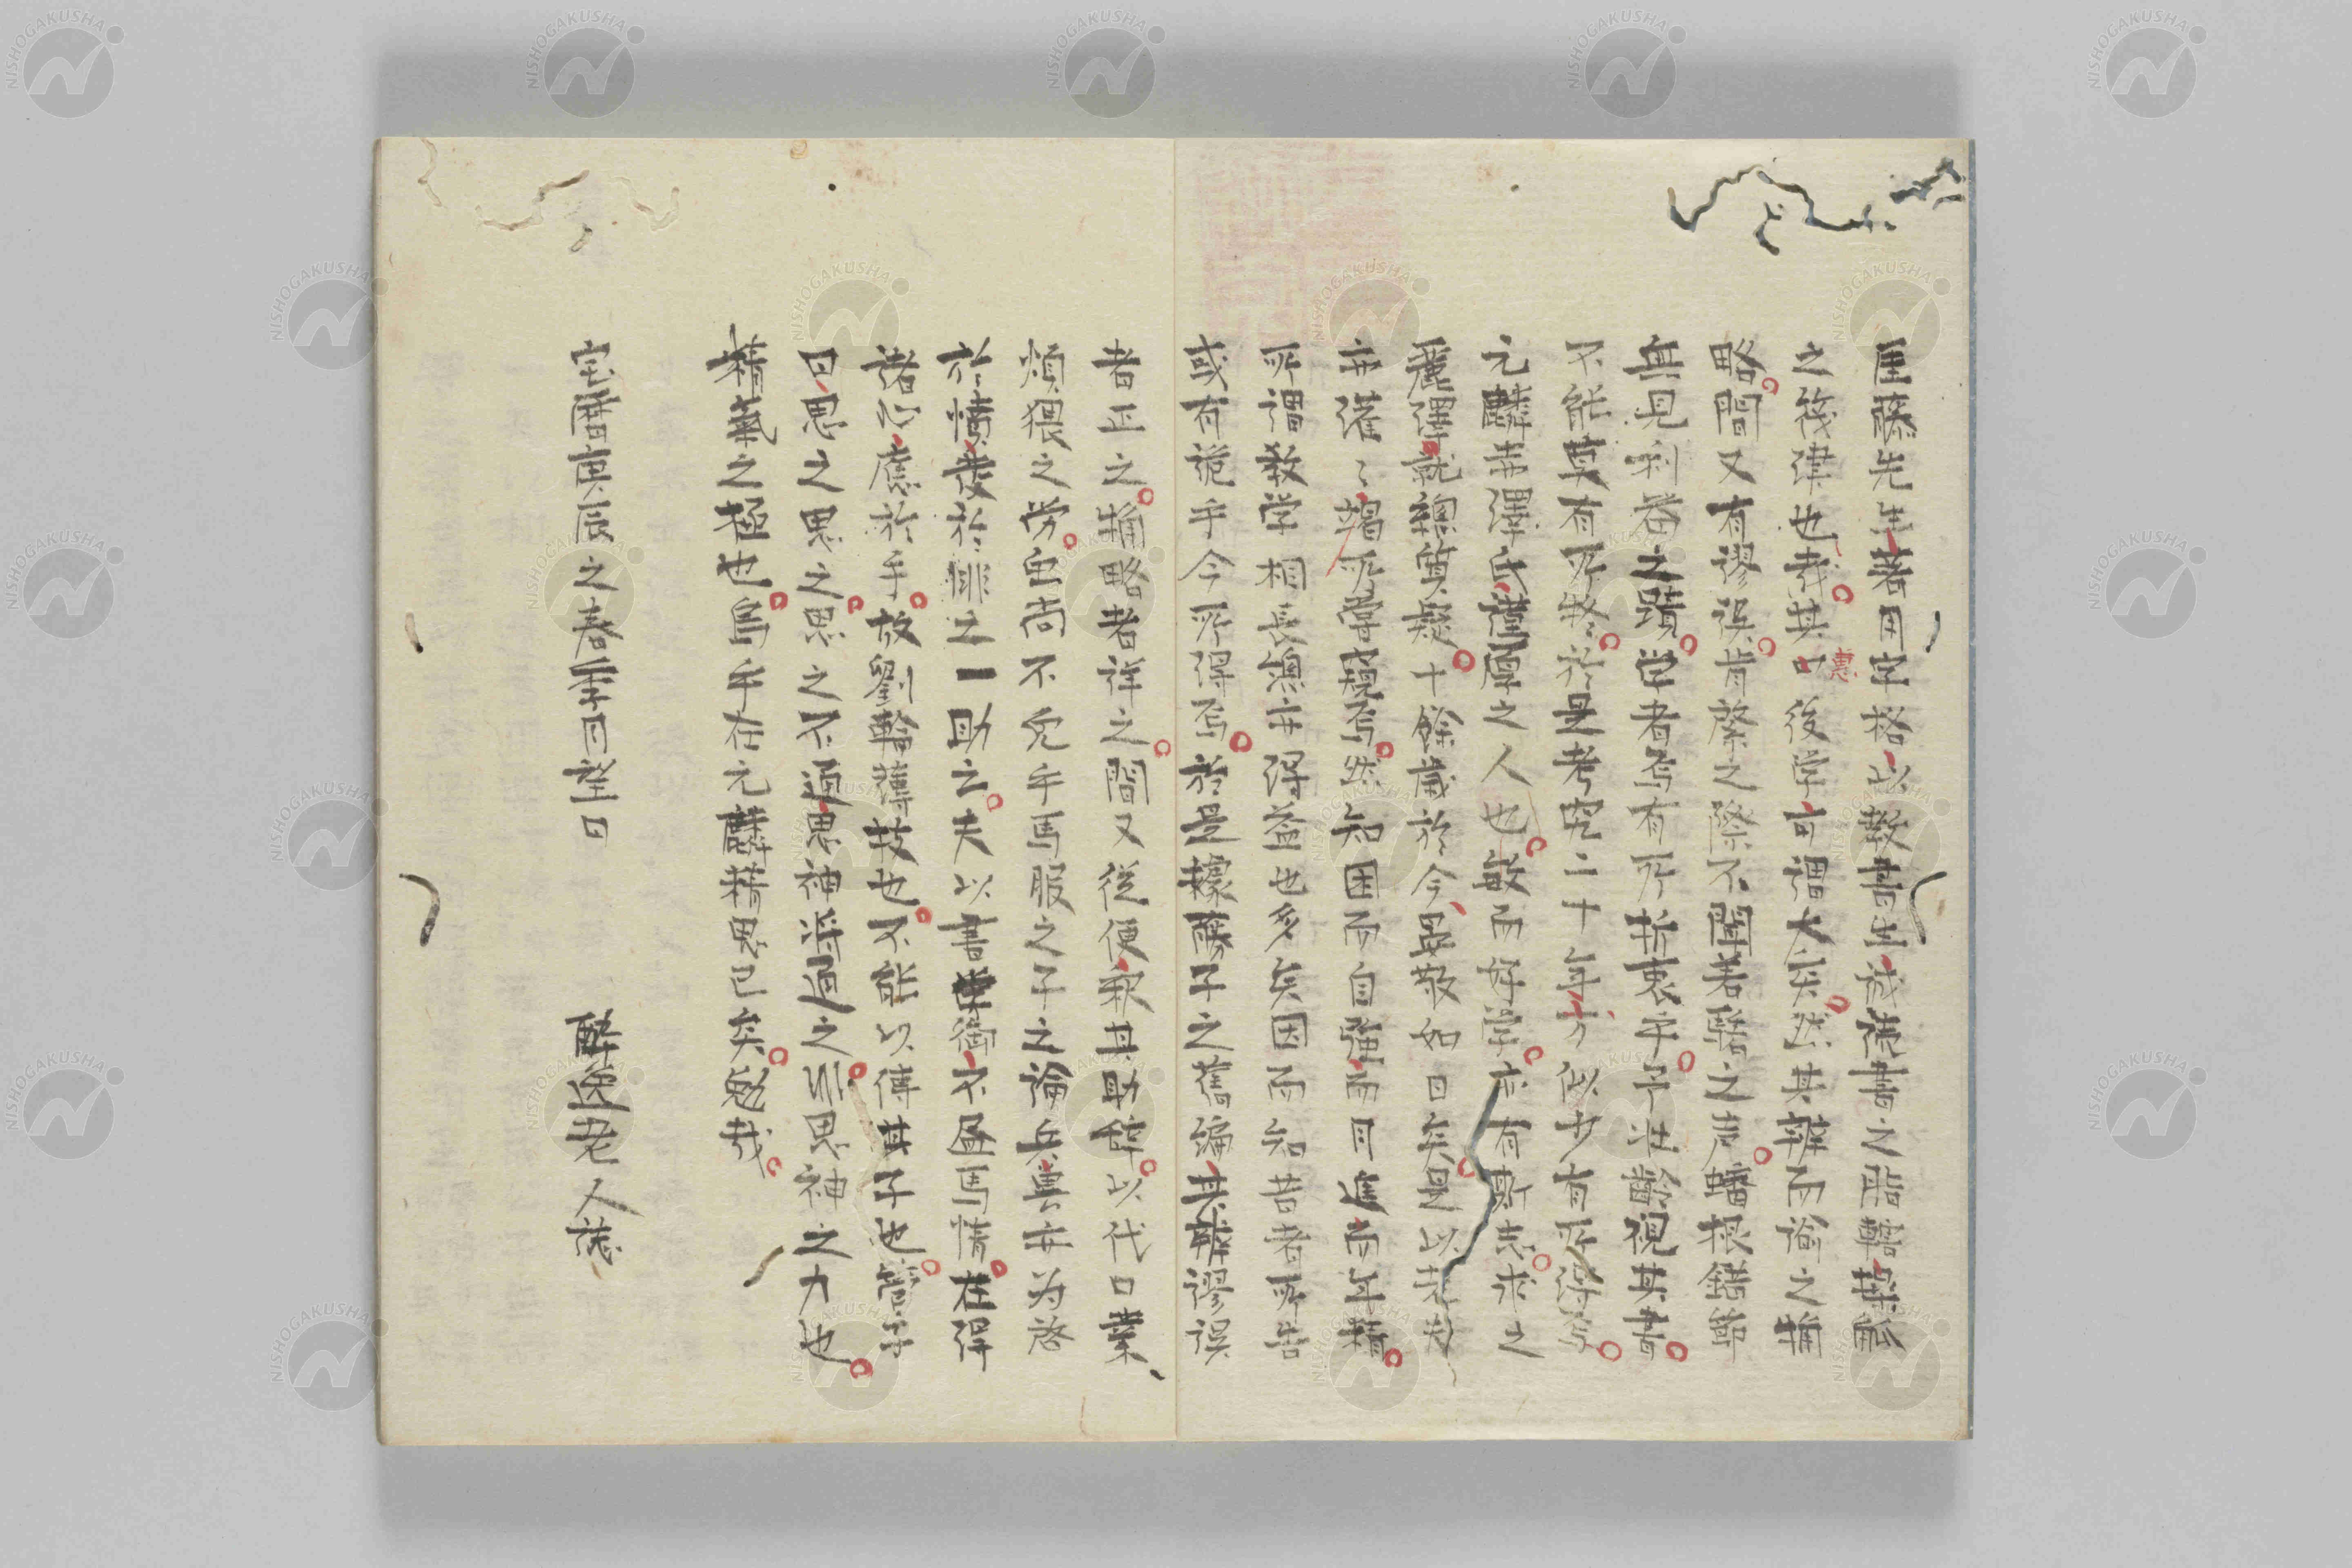 藤先生著用字格以教書生誠読書之階
之筏津也哉其惠後学可謂大矣然其辨而論之
略間又有謬誤肯綮之際不聞若砉之声蟠根錯節
無見利器之蹟学者焉有所折衷乎予壮齢視其書
不能莫有所疑於是考究二十年于今似少有所得焉
元麟井澤氏溫厚之人也敏而好学亦有斯志求之
麗澤就親質疑十餘歳於今恭敬如一日矣是以
竭所嘗窺焉然知困而自強而日進而年
所謂教学相長亦得益也多矣因而知昔者所告
或有詭乎今所得焉於是據藤子之舊編其辨謬誤
者正之論略者詳之間又從便釈其助辞以代口業
煩猥之労固尚不免乎馬服之子之論兵冀亦為啓
於憤發於悱之一助云夫以書御不盡馬情在得
諸心應於手故劉輪薄技也不能以傳其子也管子
曰思之思之思之不通鬼神將通之非鬼神之力也
精氣之極也烏乎在元麟精思已矣勉哉
宝暦庚辰之春季月望日
酔逸老人誌
NISHOGAKUSHA